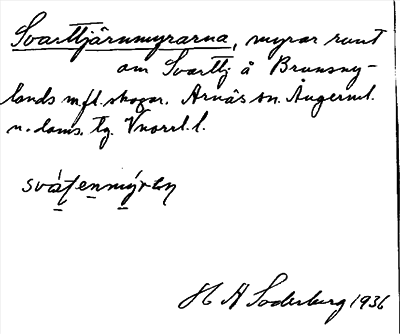 Svarttjärnmyrarna, myrar runt
om Svarttj å Brunsny-
lands m fl. skogar. Arnäs sn. Ångerml.
n. doms. tg. Vnorrl. l.
H A Söderberg 1936